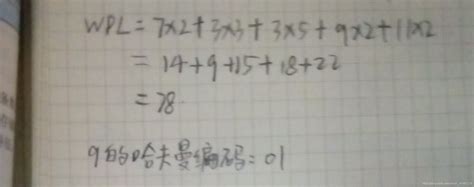 WPL = 7×2+3×3+3×5+9×2+11×2
= 14+9+15+18+22
= 78
9的哈夫曼编码: 01